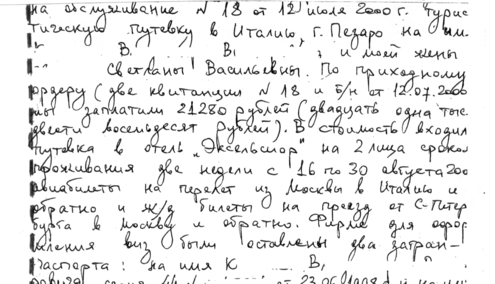 на обслуживание N 18 от 12 июля 2000 г. турис
тическую путевку в Италию, г. Пезаро на им.
В. В. ; и моей жены
Светланы Васильевны. По приходному
ордеру (две квитанции N 18 и б/н от 12.07.2000
мы заплатили 21280 рублей (двадцать одна тыс.
двести восемьдесят рублей). В стоимость входил
путевка в отель „Эксельсиор" на 2 лица сроком
проживания две недели с 16 по 30 августа 200
авиабилеты на перелет из Москвы в Италию и
обратно и ж/д билеты на проезд от С-Питер
бурга в Москву и обратно. Фирме для офор
мления виз были оставлены два загран-
паспорта: на имя К В,
от 23.06.1998 и на им